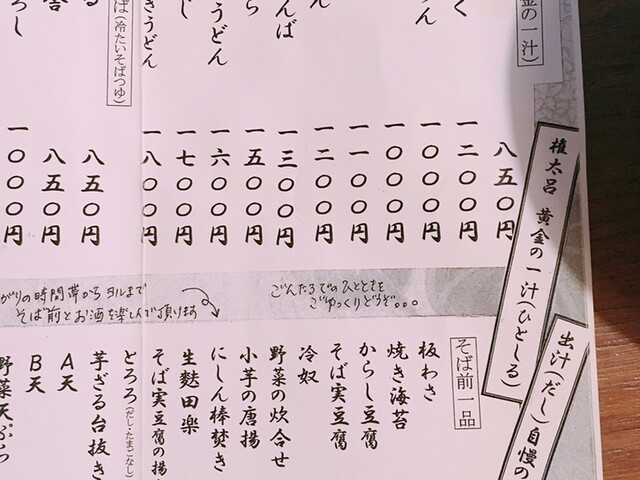 権太呂 黄金の一汁(ひとしる)
出汁(だし)自慢の
金の一汁
く
八五〇円
一二〇〇円
ん
一〇〇〇円
ら
一〇〇〇円
一一〇〇円
ん
一二〇〇円
んば
一三〇〇円
ら
一五〇〇円
うどん
一六〇〇円
じ
一七〇〇円
きうどん
一八〇〇円
ば(冷たいそばつゆ)
る
八五〇円
舎
八五〇円
ろし
一〇〇〇円
ごんたろでのひとときを
ごゆっくりどうぞ。。。
がりの時間帯からヨルまで
そば前とお酒を楽しんで頂けます
そば前一品
板わさ
焼き海苔
からし豆腐
そば実豆腐
冷奴
野菜の炊合せ
小芋の唐揚
にしん棒焚き
生麩田楽
そば実豆腐の揚
とろろ(だし・たまごなし)
芋ざる台抜き
A天
B天
野菜天ぷら